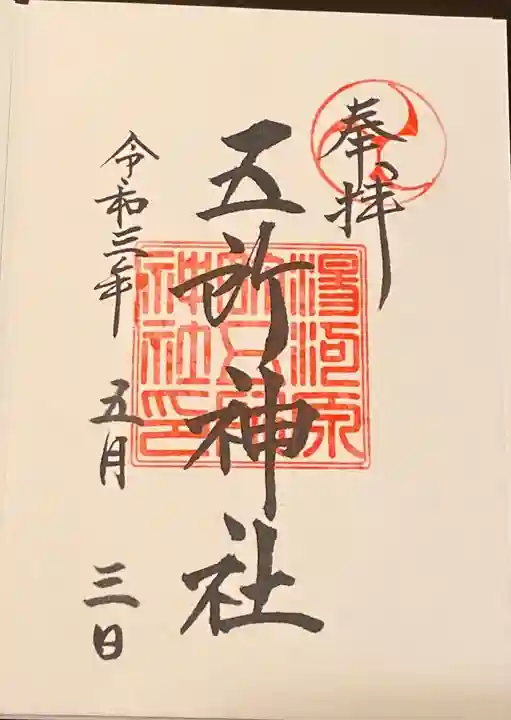 奉拝
五所神社
湯河原
神社印
令和三年 五月 三日